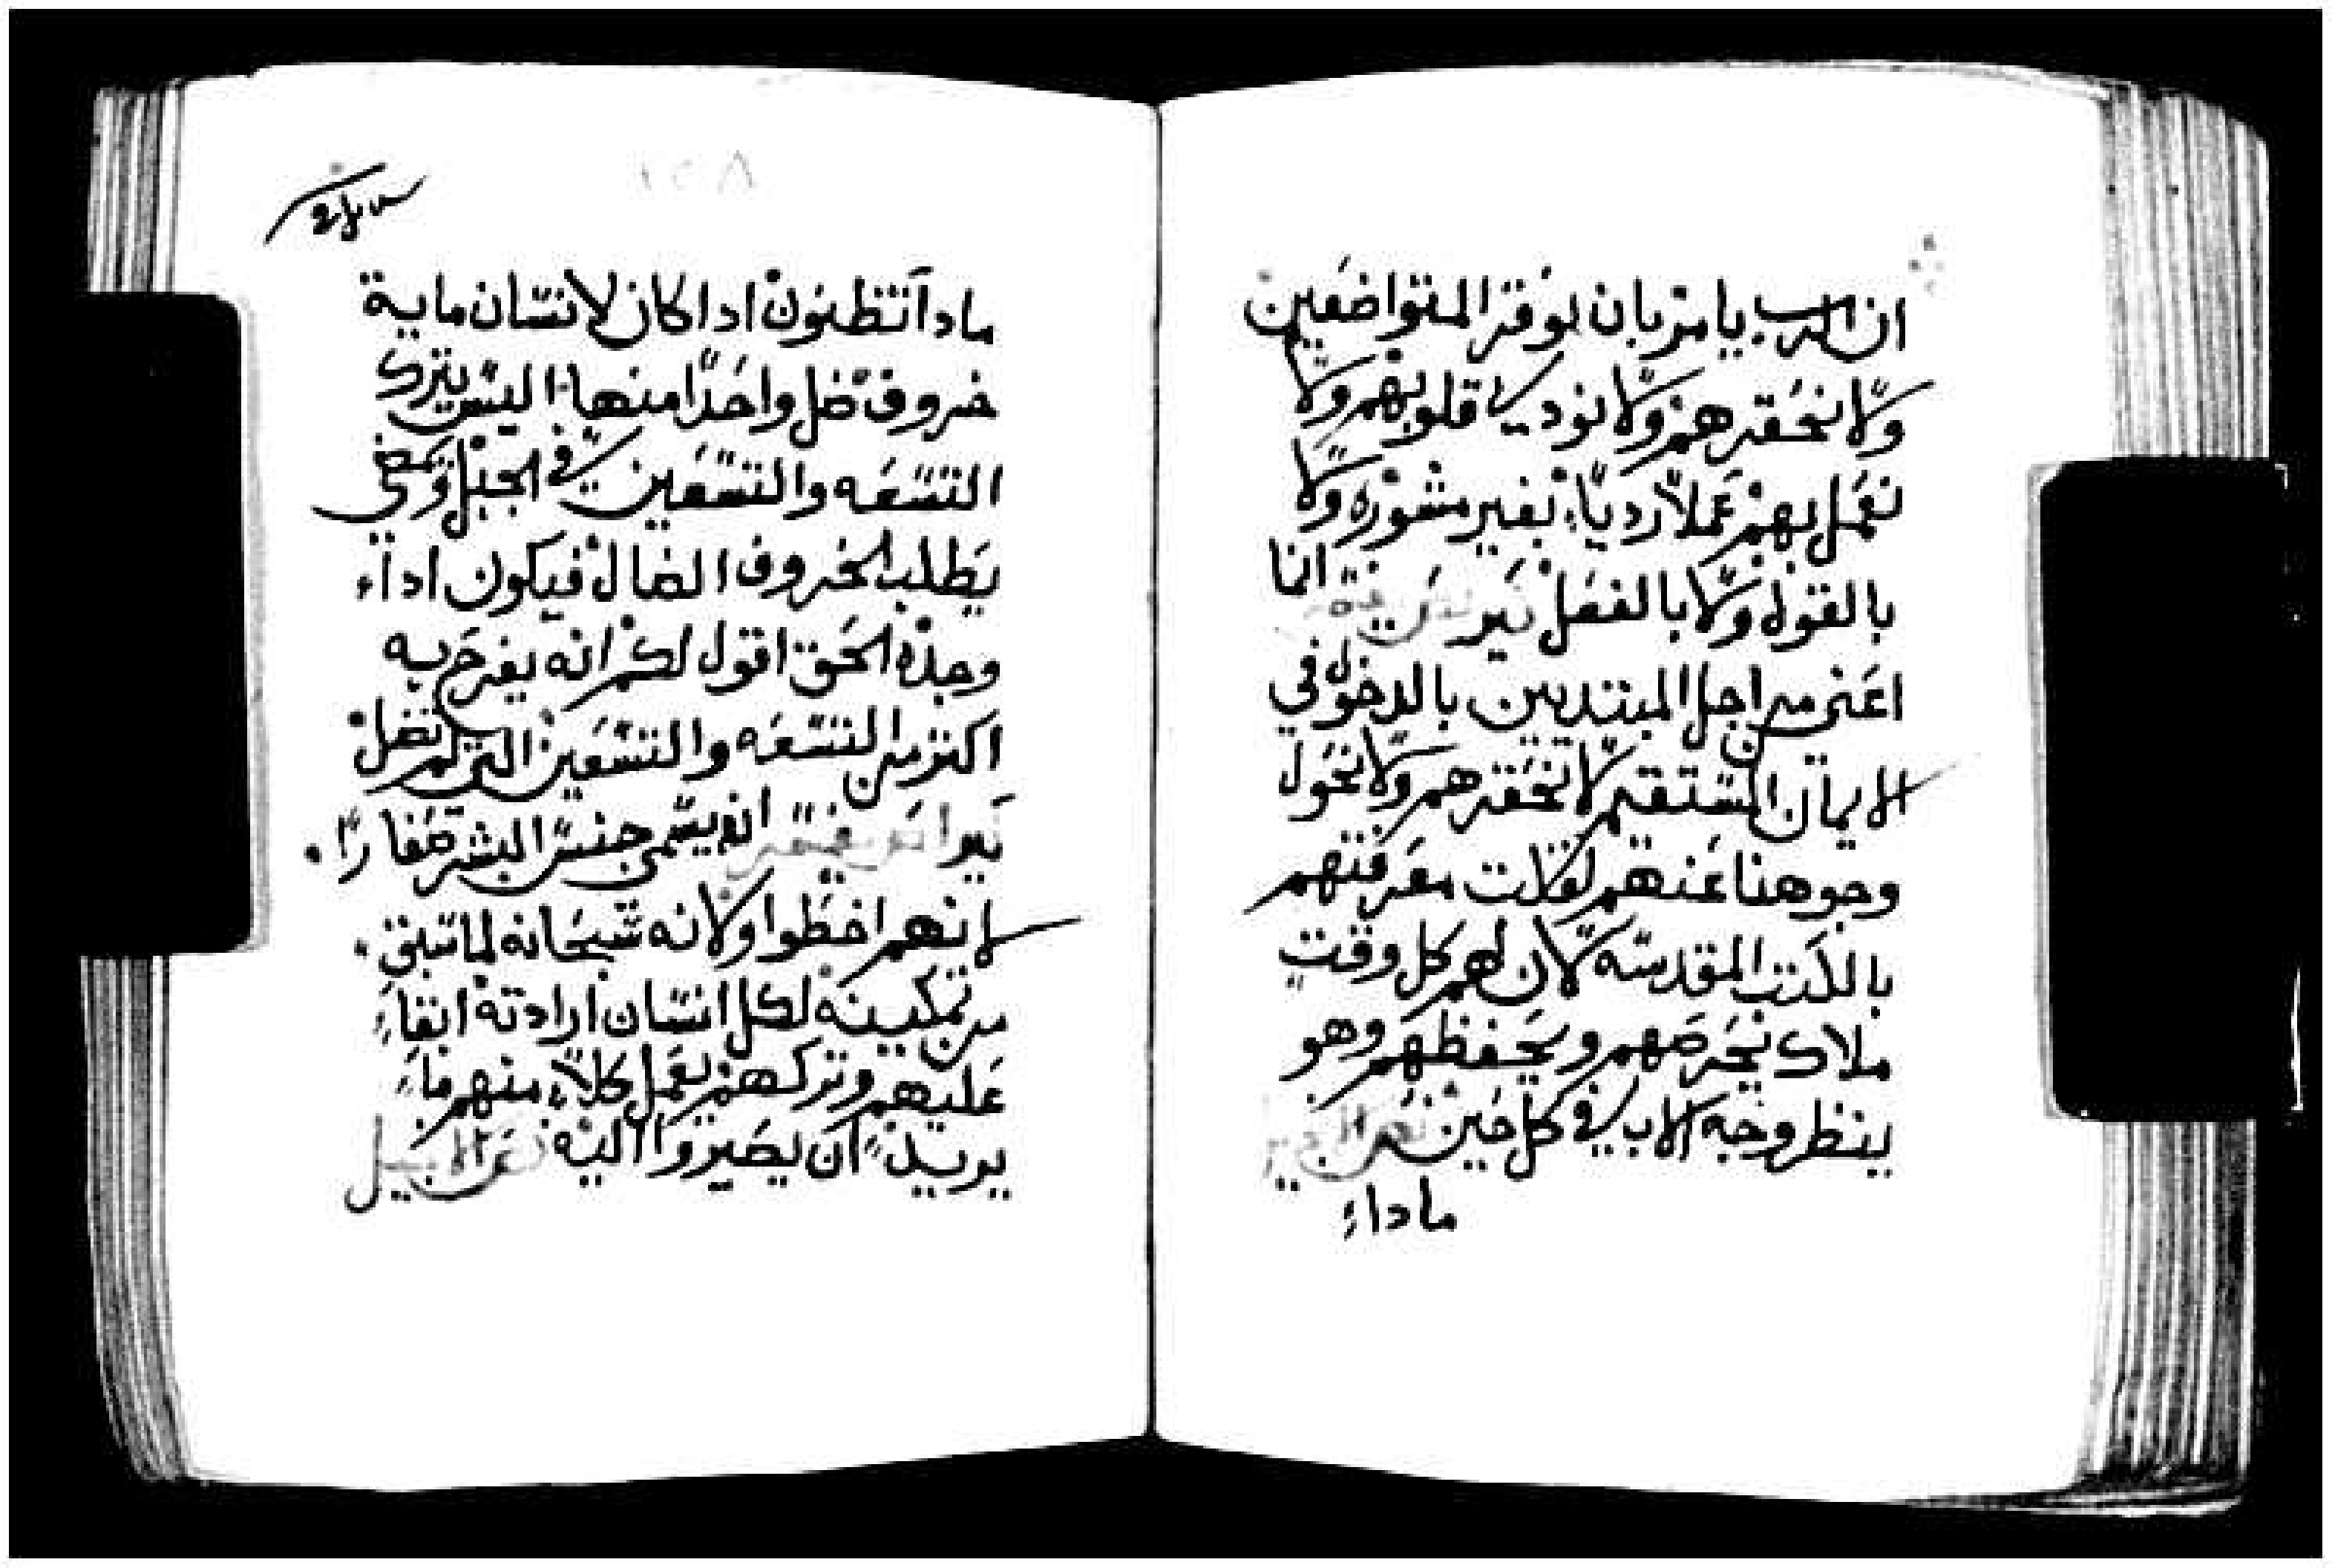 ان الرب يامر بان نوقر المتواضعين
ولا نحقرهم ولا نودي قلوبهم ولا
نعمل بهم عملاً رديًا بغير مشوره ولا
بالقول ولا بالفعل انما
اعني من اجل المبتديين بالدخول في
الايمان المستقيم لا نحقرهم ولا نحول
وجوهنا عنهم لقلت معرفتهم
بالكتب المقدسه لان لهم كل وقت
ملاك يحرصهم ويحفظهم وهو
ينظر وجه الاب في كل حين
ماداء
١٥٨
مادا تظنون ادا كان لانسان ماية
خروف ضل واحدًا منها اليس يترك
التسعه والتسعين في الجبل ويمضي
يطلب الخروف الضال فيكون اداء
وجده الحق اقول لكم انه يفرح به
اكتر من التسعه والتسعين التي لم تضل
انه يسمي جنس البشر صغارًا
لانهم اخطوا ولانه سبحانه لما سبق
من تمكينه لكل انسان ارادته ابقاء
عليهم وتركهم يعمل كلاً منهم ماء
يريد ان يصيروا اليه